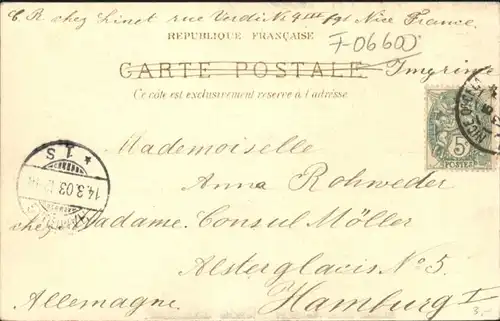 C. R. chez Linet rue Verdi No 9 III Nice France.
RÉPUBLIQUE FRANÇAISE
F-06600
CARTE POSTALE Imprimé
Ce côté est exclusivement réservé à l'adresse
5
POSTES
1 S
14.3.03
Mademoiselle
Anna Rohweder
chez Madame Consul Möller
Alsterglacis No 5.
Allemagne Hamburg I
3,-